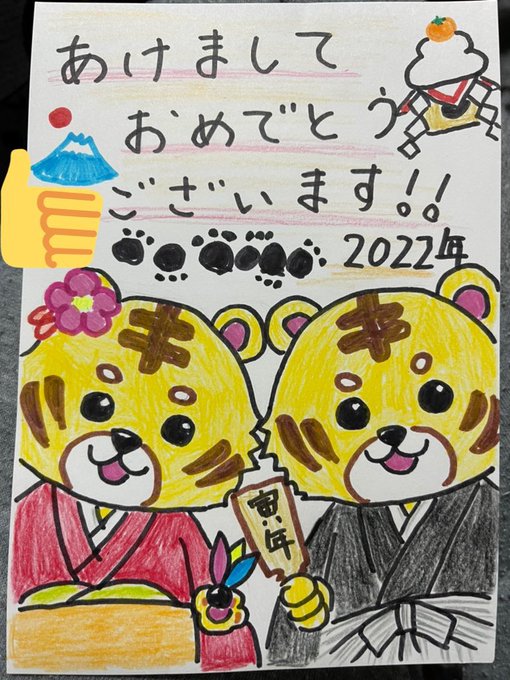 あけまして
おめでとう
ございます!!
2022年
寅年